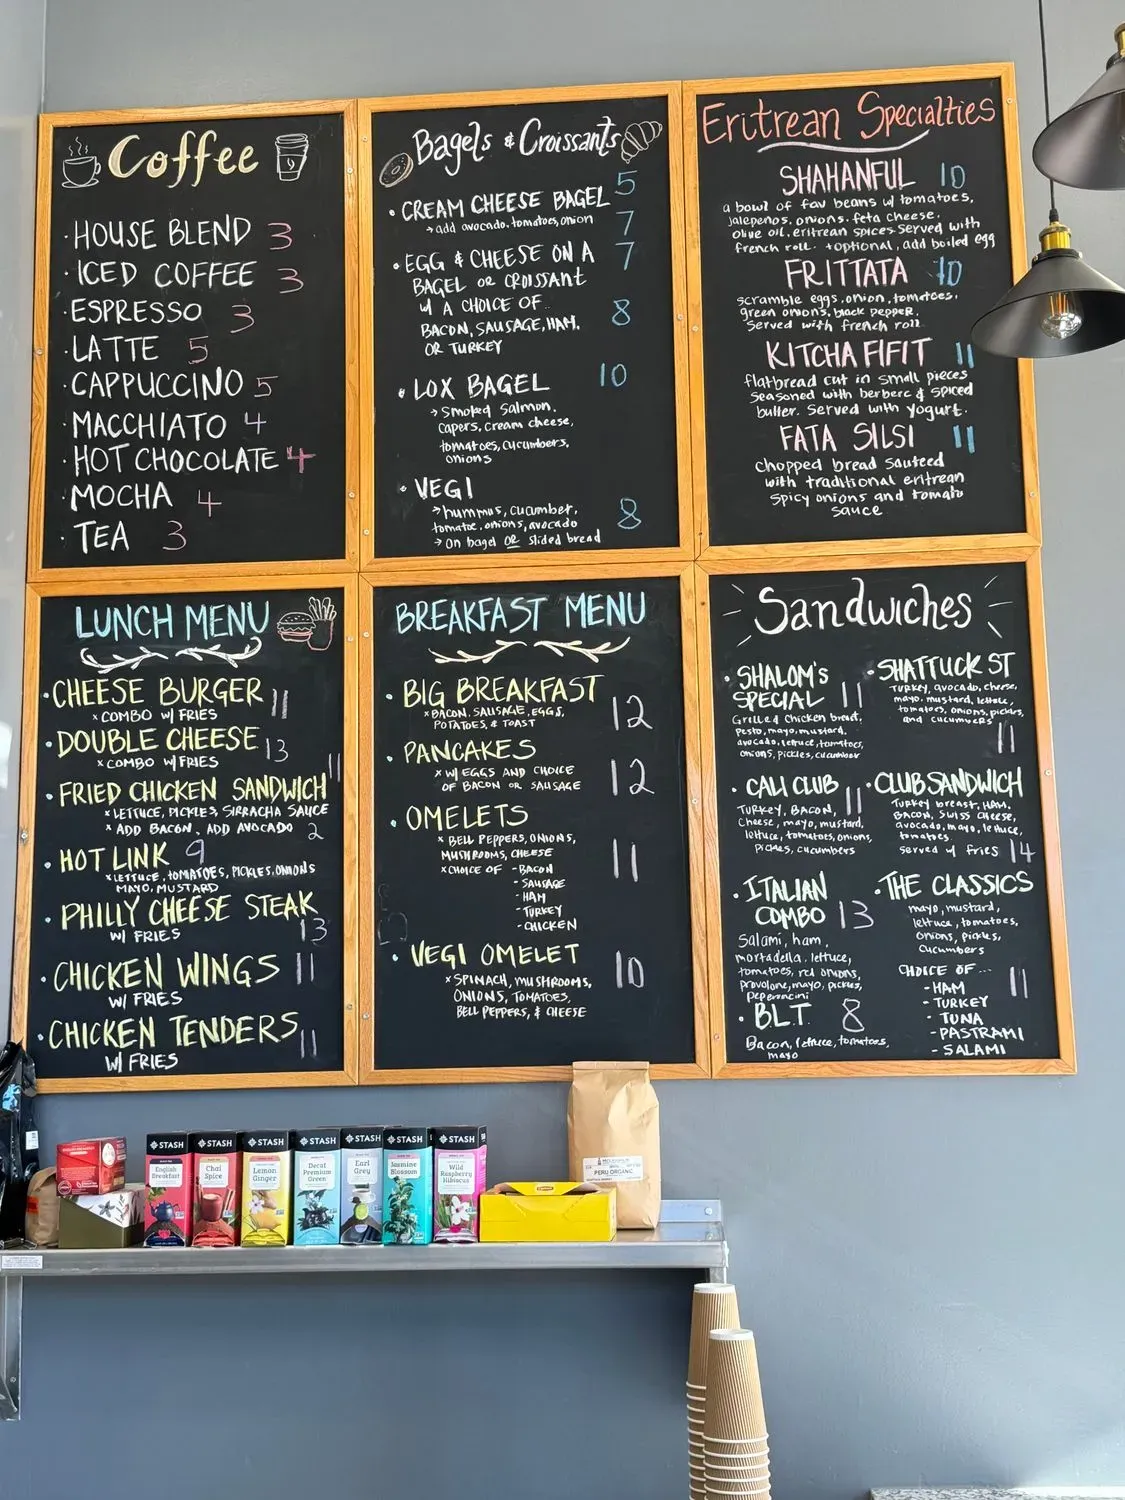 Coffee
· HOUSE BLEND 3
· ICED COFFEE 3
· ESPRESSO 3
· LATTE 5
· CAPPUCCINO 5
· MACCHIATO 4
· HOT CHOCOLATE 4
· MOCHA 4
· TEA 3
Bagels & Croissants
· CREAM CHEESE BAGEL 5
→ add avocado, tomatoes, onion 7
· EGG & CHEESE ON A 7
BAGEL OR CROISSANT
W/ A CHOICE OF
BACON, SAUSAGE, HAM, 8
OR TURKEY
· LOX BAGEL 10
→ Smoked Salmon,
capers, cream cheese,
tomatoes, cucumbers,
onions
· VEGI
→ hummus, cucumber,
tomatoe, onions, avocado 8
→ On bagel OR slided bread
Eritrean Specialties
SHAHANFUL 10
a bowl of fav beans w/ tomatoes,
jalepeños, onions, feta cheese,
olive oil, eritrean spices served with
french roll. +optional, add boiled egg
FRITTATA 10
scramble eggs, onion, tomatoes,
green onions, black pepper.
Served with french roll
KITCHA FIFIT 11
flatbread cut in small pieces
seasoned with berbere & spiced
butter. Served with yogurt.
FATA SILSI 11
chopped bread sauteed
with traditional eritrean
spicy onions and tomato
sauce
LUNCH MENU
· CHEESE BURGER 11
× COMBO W/ FRIES
· DOUBLE CHEESE 13
× COMBO W/ FRIES
· FRIED CHICKEN SANDWICH 11
× LETTUCE, PICKLES, SIRRACHA SAUCE
× ADD BACON, ADD AVOCADO 2
· HOT LINK 9
× LETTUCE, TOMATOES, PICKLES, ONIONS
MAYO, MUSTARD
· PHILLY CHEESE STEAK
W/ FRIES 13
· CHICKEN WINGS 11
W/ FRIES
· CHICKEN TENDERS 11
W/ FRIES
BREAKFAST MENU
· BIG BREAKFAST 12
× BACON, SAUSAGE, EGGS,
POTATOES, & TOAST
· PANCAKES 12
× W/ EGGS AND CHOICE
OF BACON OR SAUSAGE
· OMELETS
× BELL PEPPERS, ONIONS,
MUSHROOMS, CHEESE 11
× CHOICE OF - BACON
- SAUSAGE
- HAM
- TURKEY
- CHICKEN
· VEGI OMELET 10
× SPINACH, MUSHROOMS,
ONIONS, TOMATOES,
BELL PEPPERS, & CHEESE
Sandwiches
· SHALOM'S
SPECIAL 11
Grilled chicken breast,
pesto, mayo, mustard,
avocado, lettuce, tomatoes,
onions, pickles, cucumber
· SHATTUCK ST
TURKEY, avocado, cheese,
mayo, mustard, lettuce,
tomatoes, onions, pickles,
and cucumbers
11
· CALI CLUB 11
TURKEY, BACON,
cheese, mayo, mustard,
lettuce, tomatoes, onions,
pickles, cucumbers
· CLUB SANDWICH
Turkey breast, HAM,
BACON, Swiss cheese,
avocado, mayo, lettuce,
tomatoes.
served w/ fries 14
· ITALIAN
COMBO 13
Salami, ham,
mortadella, lettuce,
tomatoes, red onions,
provolone, mayo, pickles,
Peperoncini
· THE CLASSICS
mayo, mustard,
lettuce, tomatoes,
onions, pickles,
cucumbers
CHOICE OF... 11
- HAM
- TURKEY
- TUNA
- PASTRAMI
- SALAMI
· BLT 8
Bacon, lettuce, tomatoes,
mayo
STASH
English
Breakfast
STASH
Chai
Spice
STASH
Lemon
Ginger
STASH
Decaf
Premium
Green
STASH
Earl
Grey
STASH
Jasmine
Blossom
STASH
Wild
Raspberry
Hibiscus
PERU ORGANIC